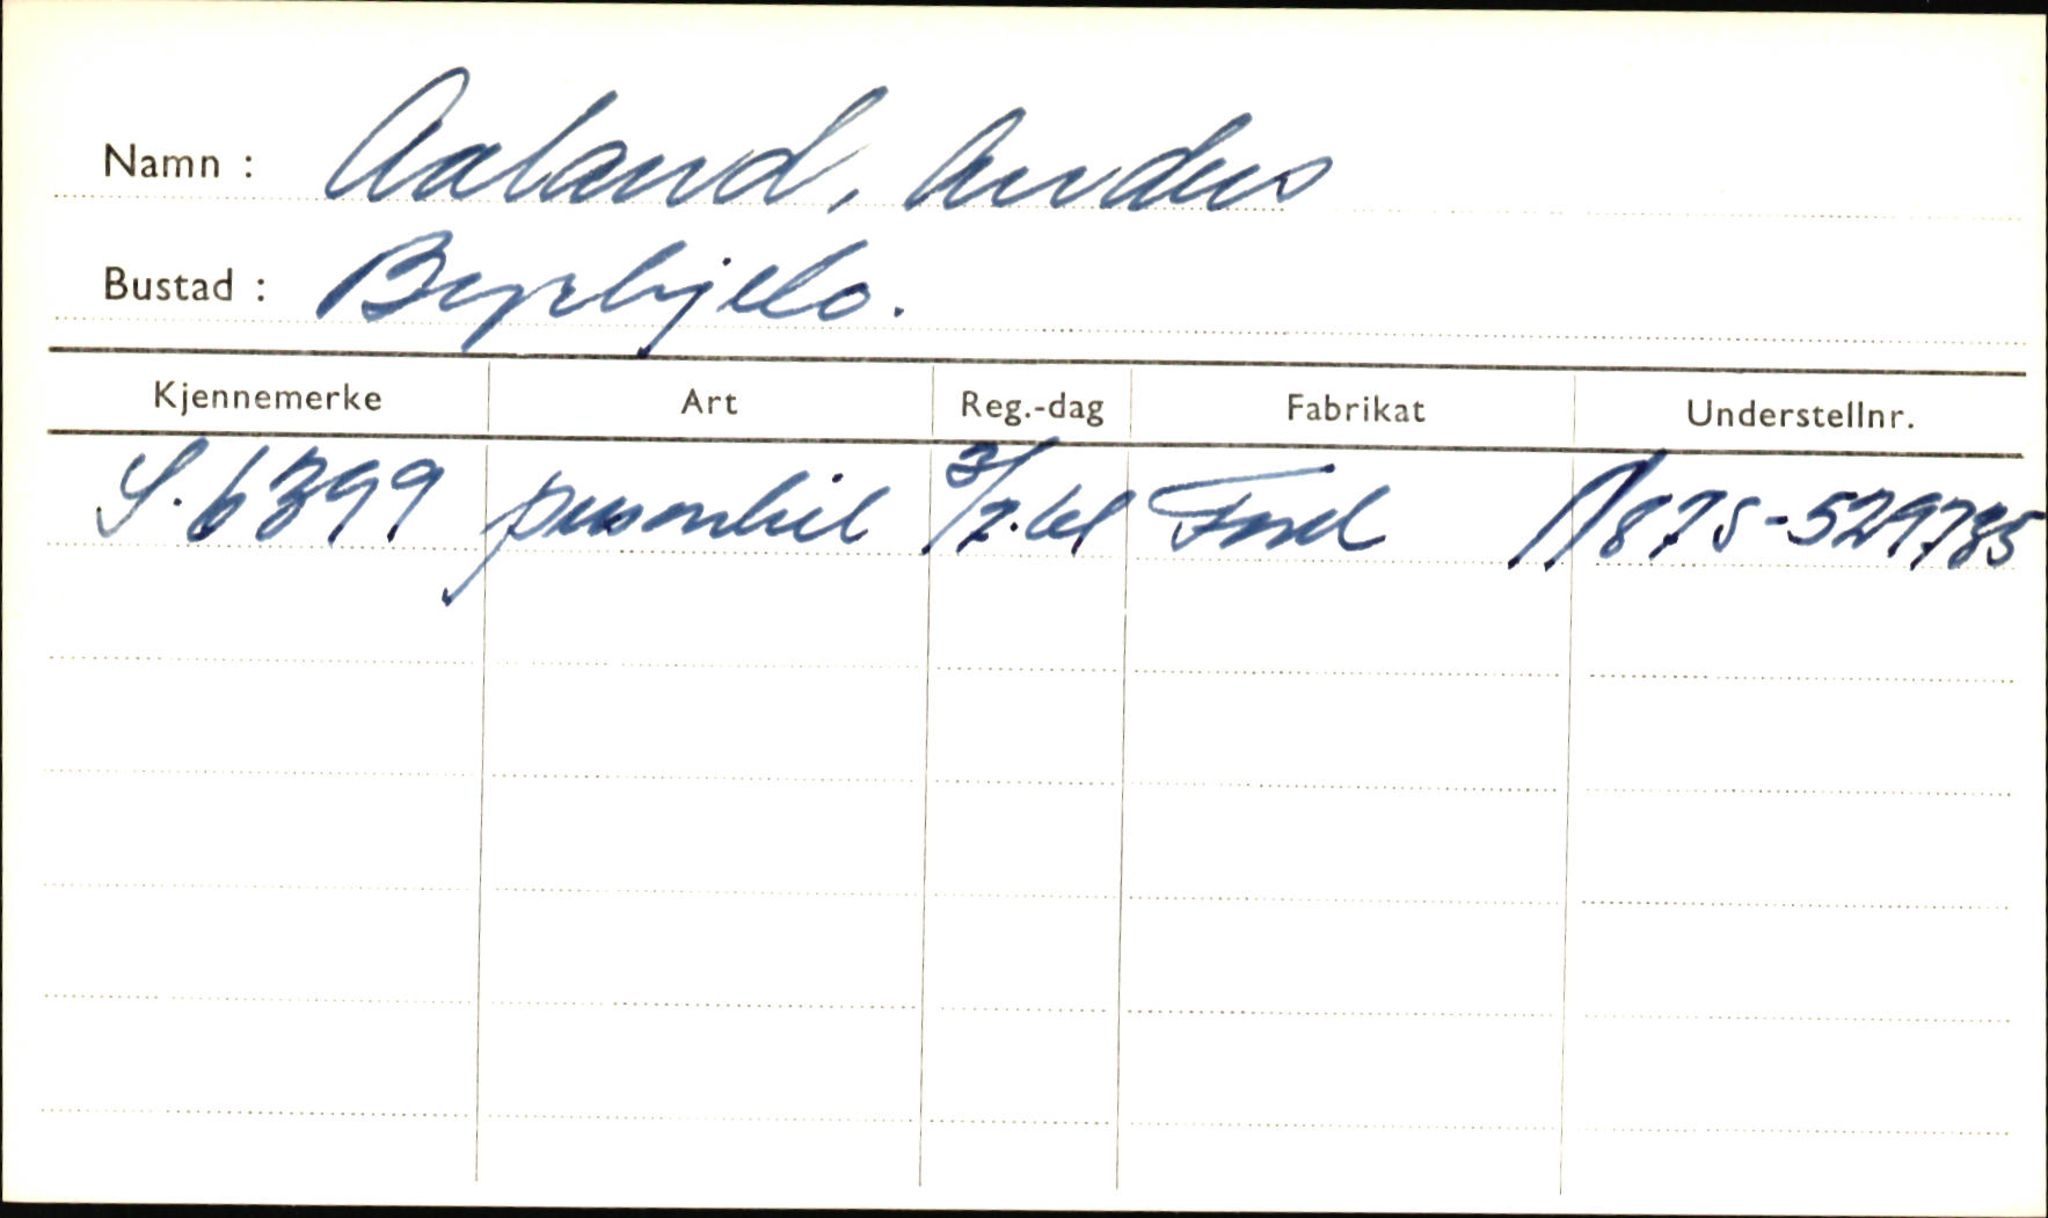 Namn : Aaland, Anders
Bustad : Byrkjelo.
Kjennemerke Art Reg.-dag Fabrikat Understellnr.
S. 6399 personbil 3/7.61 Ford